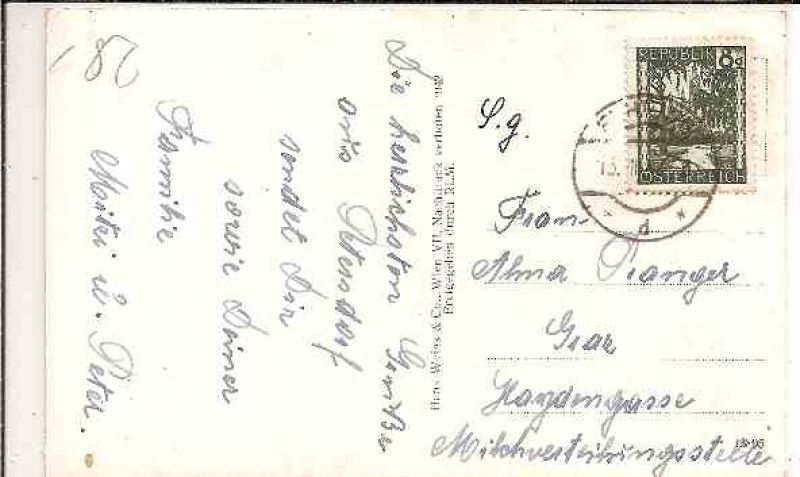 Die herzlichsten Grüße
aus Petersdorf
sendet Dir
sowie Deiner
Familie
Mitzi u. Peter.
Hans Weiss & Co., Wien VII, Nachdruck verboten 1942
Freigegeben durch RLM.
S. g.
REPUBLIK 8g
ÖSTERREICH
d
Frau
Alma Pranger
Graz
Haydngasse
Milchverteilungsstelle